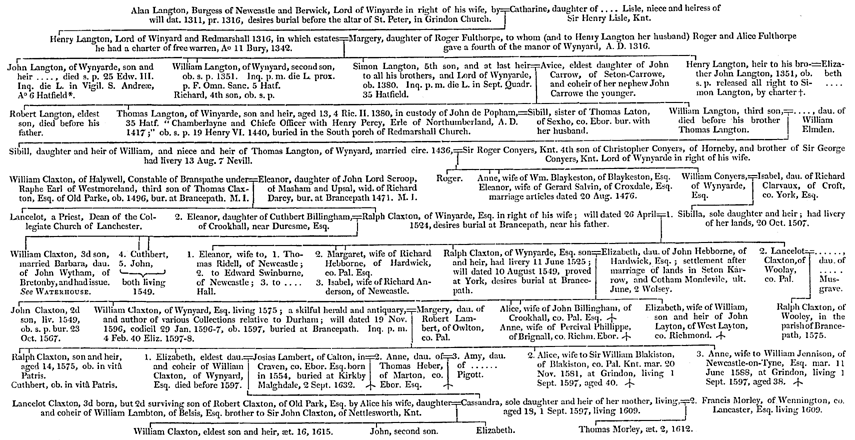 Alan Langton, Burgess of Newcastle and Berwick, Lord of Winyarde in right of his wife, by═Catharine, daughter of .... Lisle, niece and heiress of
will dat. 1311, pr. 1316, desires burial before the altar of St. Peter, in Grindon Church. Sir Henry Lisle, Knt.
Henry Langton, Lord of Winyard and Redmarshall 1316, in which estates═Margery, daughter of Roger Fulthorpe, to whom (and to Henry Langton her husband) Roger and Alice Fulthorpe
he had a charter of free warren, Aº 11 Bury, 1342. gave a fourth of the manor of Wynyard, A. D. 1316.
John Langton, of Wynyarde, son and
heir ...., died s. p. 25 Edw. III.
Inq. die L. in Vigil. S. Andreæ,
Aº 6 Hatfield*.
William Langton, of Wynyard, second son,
ob. s. p. 1351. Inq. p. m. die L. prox.
p. F. Omn. Sanc. 5 Hatf.
Richard, 4th son, ob. s. p.
Simon Langton, 5th son, and at last heir═Avice, eldest daughter of John
to all his brothers, and Lord of Wynyarde, Carrow, of Seton-Carrowe,
ob. 1380. Inq. p. m. die L. in Sept. Quadr. and coheir of her nephew John
35 Hatfield. Carrowe the younger.
Henry Langton, heir to his bro-═Eliza-
ther John Langton, 1351, ob. beth
s. p. released all right to Si- ....
mon Langton, by charter †.
Robert Langton, eldest
son, died before his
father.
Thomas Langton, of Wynyarde, son and heir, aged 13, 4 Ric. II. 1380, in custody of John de Popham,═Sibill, sister of Thomas Laton,
35 Hatf. "Chamberlayne and Chiefe Officer with Henry Percy, Erle of Northumberland, A. D. of Sexho, co. Ebor. bur. with
1417;" ob. s. p. 19 Henry VI. 1440, buried in the South porch of Redmarshall Church. her husband.
William Langton, third son,═...., dau. of
died before his brother William
Thomas Langton. Elmden.
Sibill, daughter and heir of William, and niece and heir of Thomas Langton, of Wynyard, married circ. 1436,═Sir Roger Conyers, Knt. 4th son of Christopher Conyers, of Horneby, and brother of Sir George
had livery 13 Aug. 7 Nevill. Conyers, Knt. Lord of Wynyarde in right of his wife.
William Claxton, of Halywell, Constable of Branspathe under═Eleanor, daughter of John Lord Scroop,
Raphe Earl of Westmoreland, third son of Thomas Clax- of Masham and Upsal, wid. of Richard
ton, Esq. of Old Parke, ob. 1496, bur. at Brancepath. M. I. Darcy, bur. at Brancepath 1471, M. I.
Roger. Anne, wife of Wm. Blaykeston, of Blaykeston, Esq.
Eleanor, wife of Gerard Salvin, of Croxdale, Esq.
marriage articles dated 20 Aug. 1476.
William Conyers,═Isabel, dau. of Richard
of Wynyarde, Clarvaux, of Croft,
Esq. co. York, Esq.
Lancelot, a Priest, Dean of the Col-
legiate Church of Lanchester.
2. Eleanor, daughter of Cuthbert Billingham,═Ralph Claxton, of Winyarde, Esq. in right of his wife; will dated 26 April═1. Sibilla, sole daughter and heir; had livery
of Crookhall, near Duresme, Esq. 1524, desires burial at Brancepath, near his father. of her lands, 20 Oct. 1507.
William Claxton, 3d son,
married Barbara, dau.
of John Wytham, of
Bretonby, and had issue.
See WATERHOUSE.
4. Cuthbert,
5. John,
both living
1549.
1. Eleanor, wife to, 1. Tho-
mas Ridell, of Newcastle;
2. to Edward Swinburne,
of Newcastle; 3. to ....
Hall.
2. Margaret, wife of Richard
Hebborne, of Hardwick,
co. Pal. Esq.
3. Isabel, wife of Richard An-
derson, of Newcastle.
Ralph Claxton, of Wynyarde, Esq. son═Elizabeth, dau. of John Hebborne, of
and heir, had livery 11 June 1525; Hardwick, Esq.; settlement after
will dated 10 August 1549, proved marriage of lands in Seton Kar-
at York, desires burial at Brance- row, and Cotham Mondevile, ult.
path. June, 2 Wolsey.
2. Lancelot═.....,
Claxton, of dau.
Woolay, of .....
co. Pal. Mus-
grave.
John Claxton, 2d
son, liv. 1549,
ob. s. p. bur. 23
Oct. 1567.
William Claxton, of Wynyard, Esq. living 1575; a skilful herald and antiquary,═Margery, dau. of
and author of various Collections relative to Durham; will dated 19 Nov. Robert Lam-
1596, codicil 29 Jan. 1596-7, ob. 1597, buried at Brancepath. Inq. p. m. bert, of Owlton,
4 Feb. 40 Eliz. 1597-8. co. Pal.
Alice, wife of John Billingham, of
Crookhall, co. Pal. Esq.
Anne, wife of Percival Phillippe,
of Brignall, co. Richm. Ebor.
Elizabeth, wife of William,
son and heir of John
Layton, of West Layton,
co. Richmond.
Ralph Claxton, of
Wooley, in the
parish of Brance-
path, 1575.
Ralph Claxton, son and heir,
aged 14, 1575, ob. in vitâ
Patris.
Cuthbert, ob. in vitâ Patris.
1. Elizabeth, eldest dau.═Josias Lambert, of Calton, in═2. Anne, dau. of═3. Amy, dau.
and coheir of William Craven, co. Ebor. Esq. born Thomas Heber, of ......
Claxton, of Wynyard, in 1554, buried at Kirkby of Marton, co. Pigott.
Esq. died before 1597. Malghdale, 2 Sept. 1632. Ebor. Esq.
2. Alice, wife to Sir William Blakiston,
of Blakiston, co. Pal. Knt. mar. 20
Nov. 1581, at Grindon, living 1
Sept. 1597, aged 40.
3. Anne, wife to William Jennison, of
Newcastle-on-Tyne, Esq. mar. 11
June 1588, at Grindon, living 1
Sept. 1597, aged 38.
Lancelot Claxton, 3d born, but 2d surviving son of Robert Claxton, of Old Park, Esq. by Alice his wife, daughter═Cassandra, sole daughter and heir of her mother, living═2. Francis Morley, of Wennington, co.
and coheir of William Lambton, of Belsis, Esq. brother to Sir John Claxton, of Nettlesworth, Knt. aged 18, 1 Sept. 1597, living 1609. Lancaster, Esq. living 1609.
William Claxton, eldest son and heir, æt. 16, 1615. John, second son. Elizabeth. Thomas Morley, æt. 2, 1612.